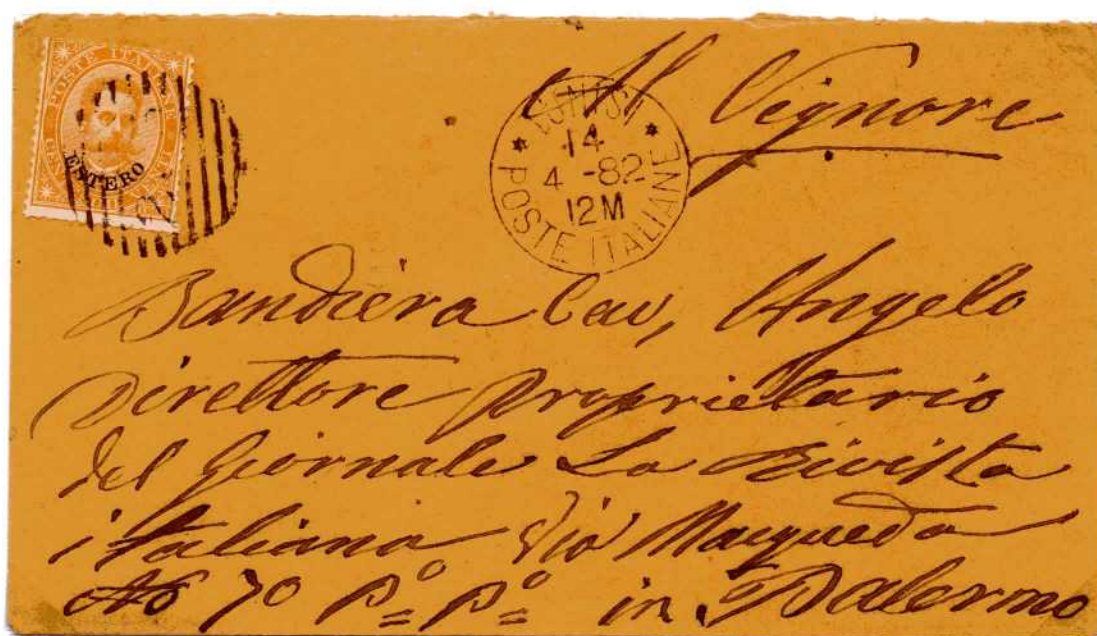 POSTE ITALIANE
ESTERO
TUNISI
14
4 -82
12M
POSTE ITALIANE
Al Signore
Bandiera Cav, Angelo
Direttore proprietario
del Giornale La Rivista
italiana Via Macqueda
No 70 P=º P=º in Palermo